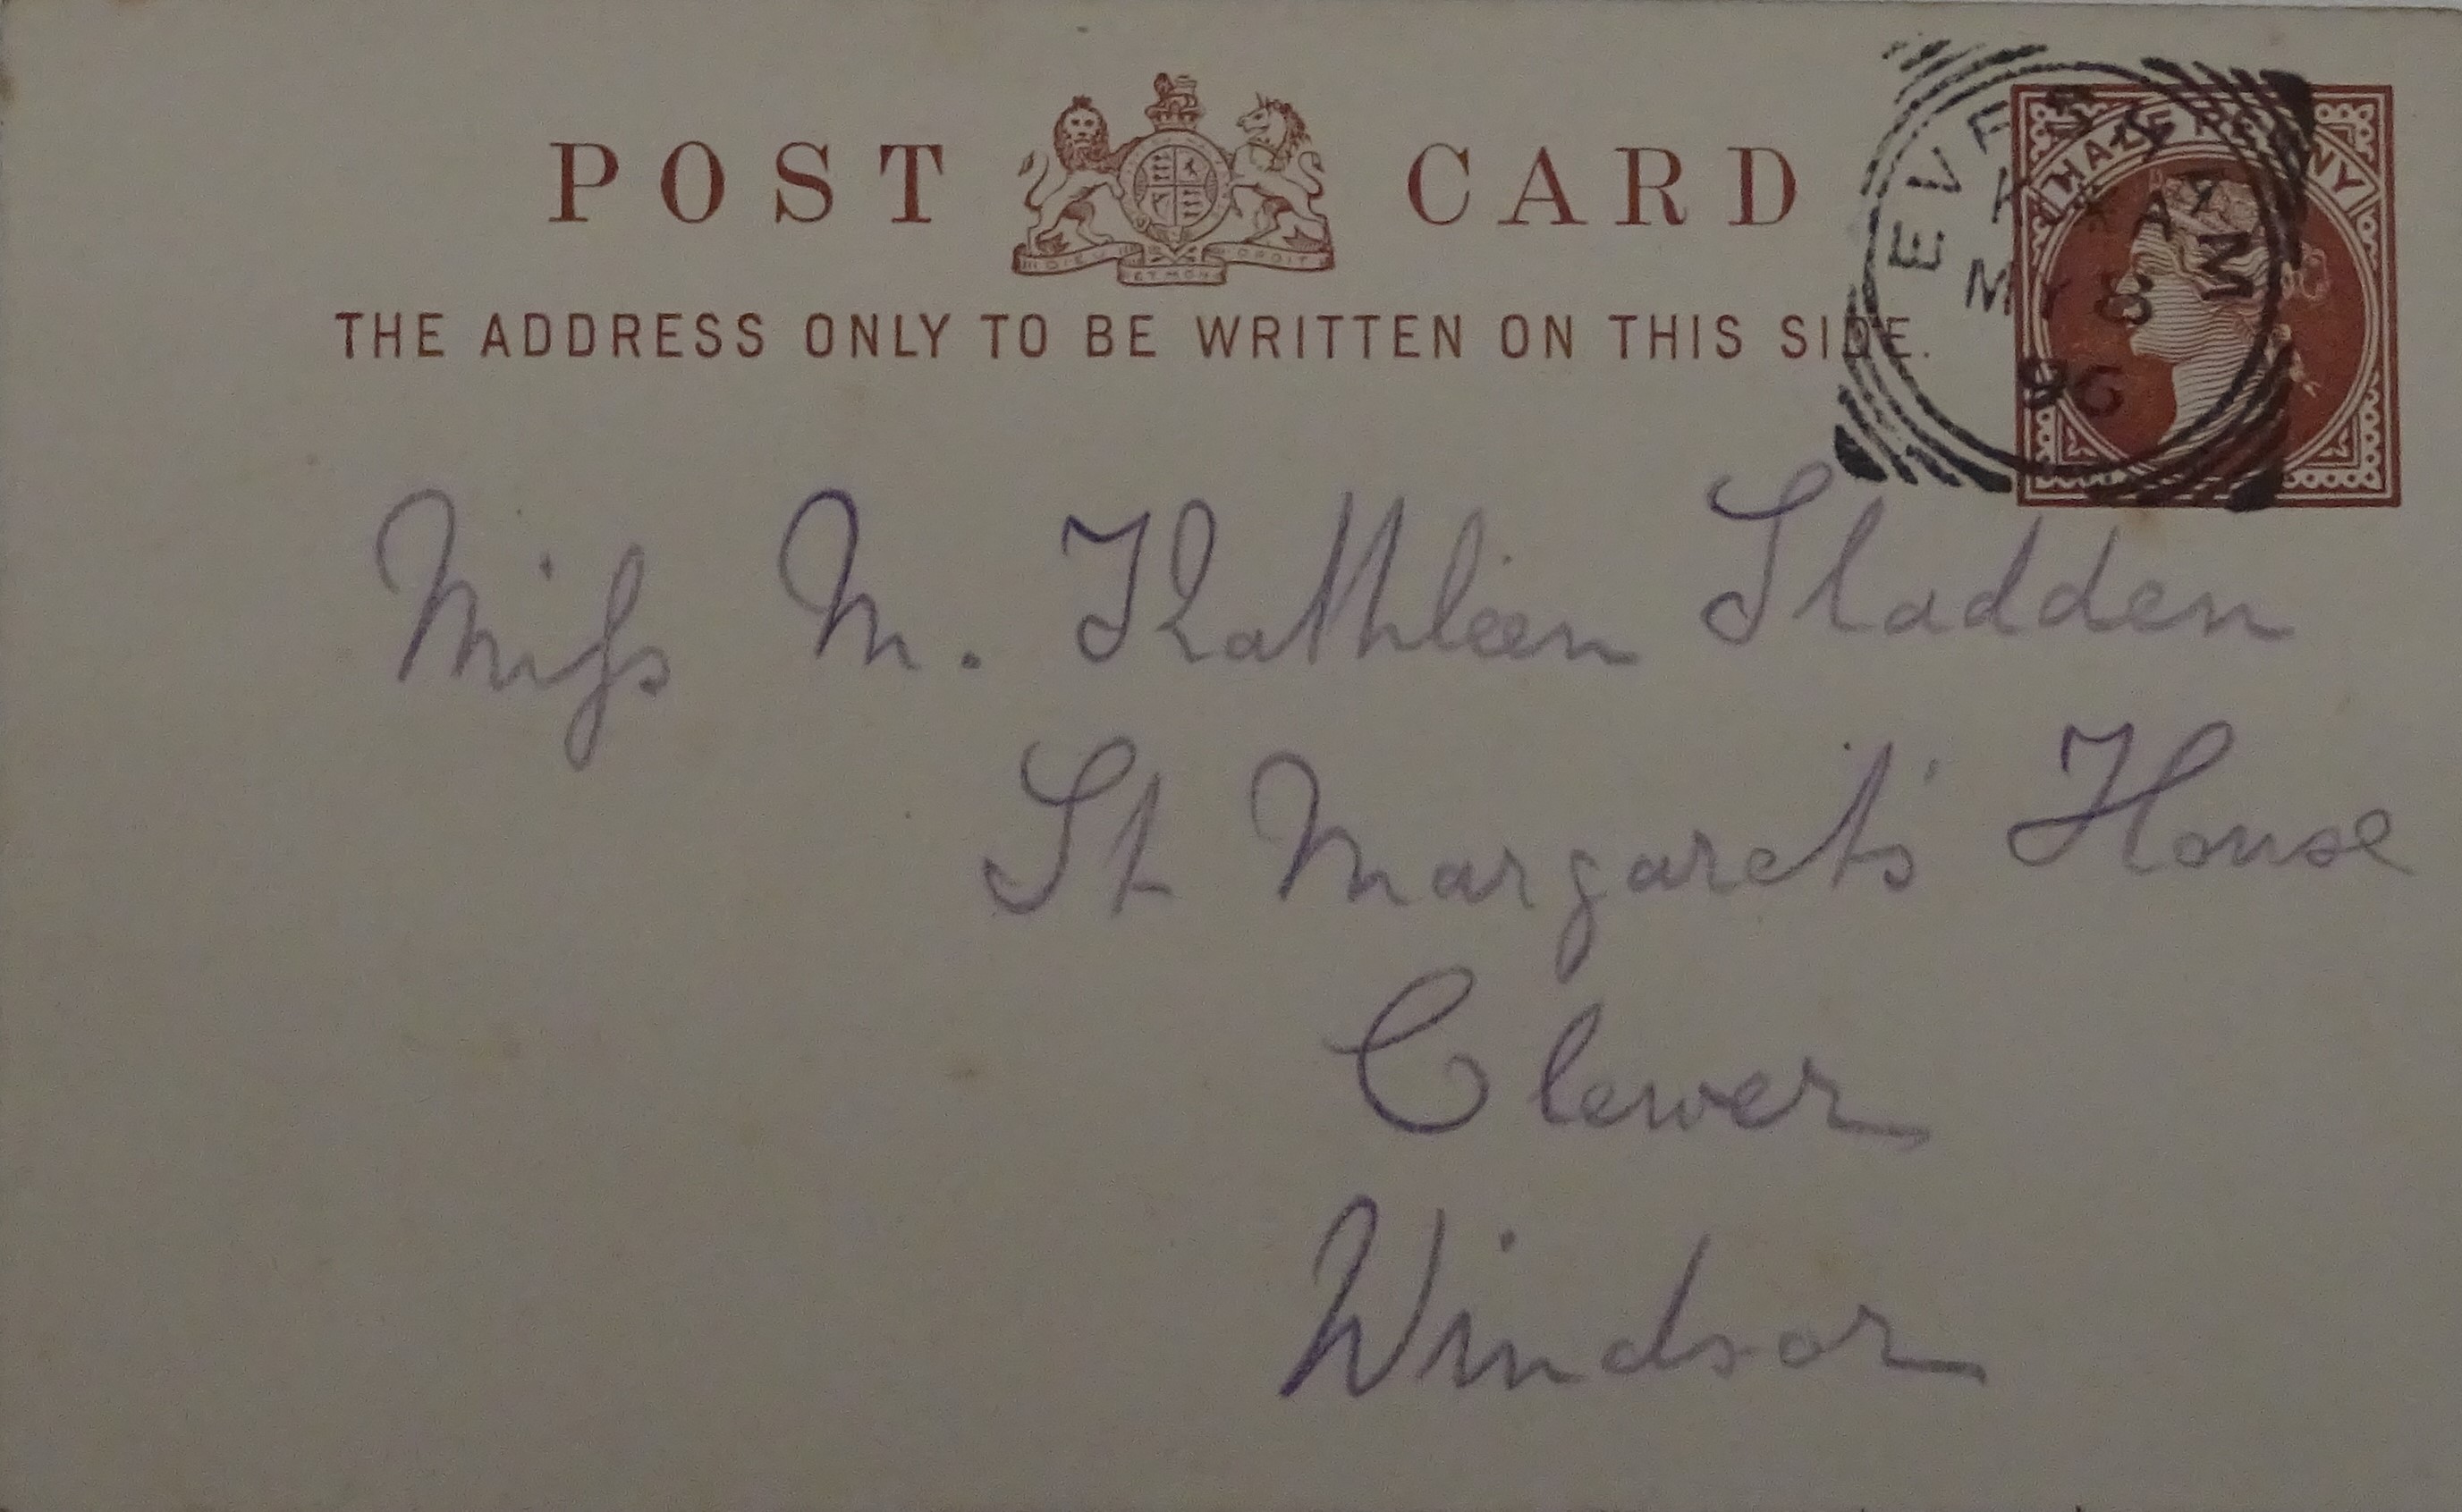 POST CARD
THE ADDRESS ONLY TO BE WRITTEN ON THIS SIDE.
HALFPENNY
EVESHAM
MY 8
96
Miss M. Kathleen Sladden
St Margaret's House
Clewer
Windsor